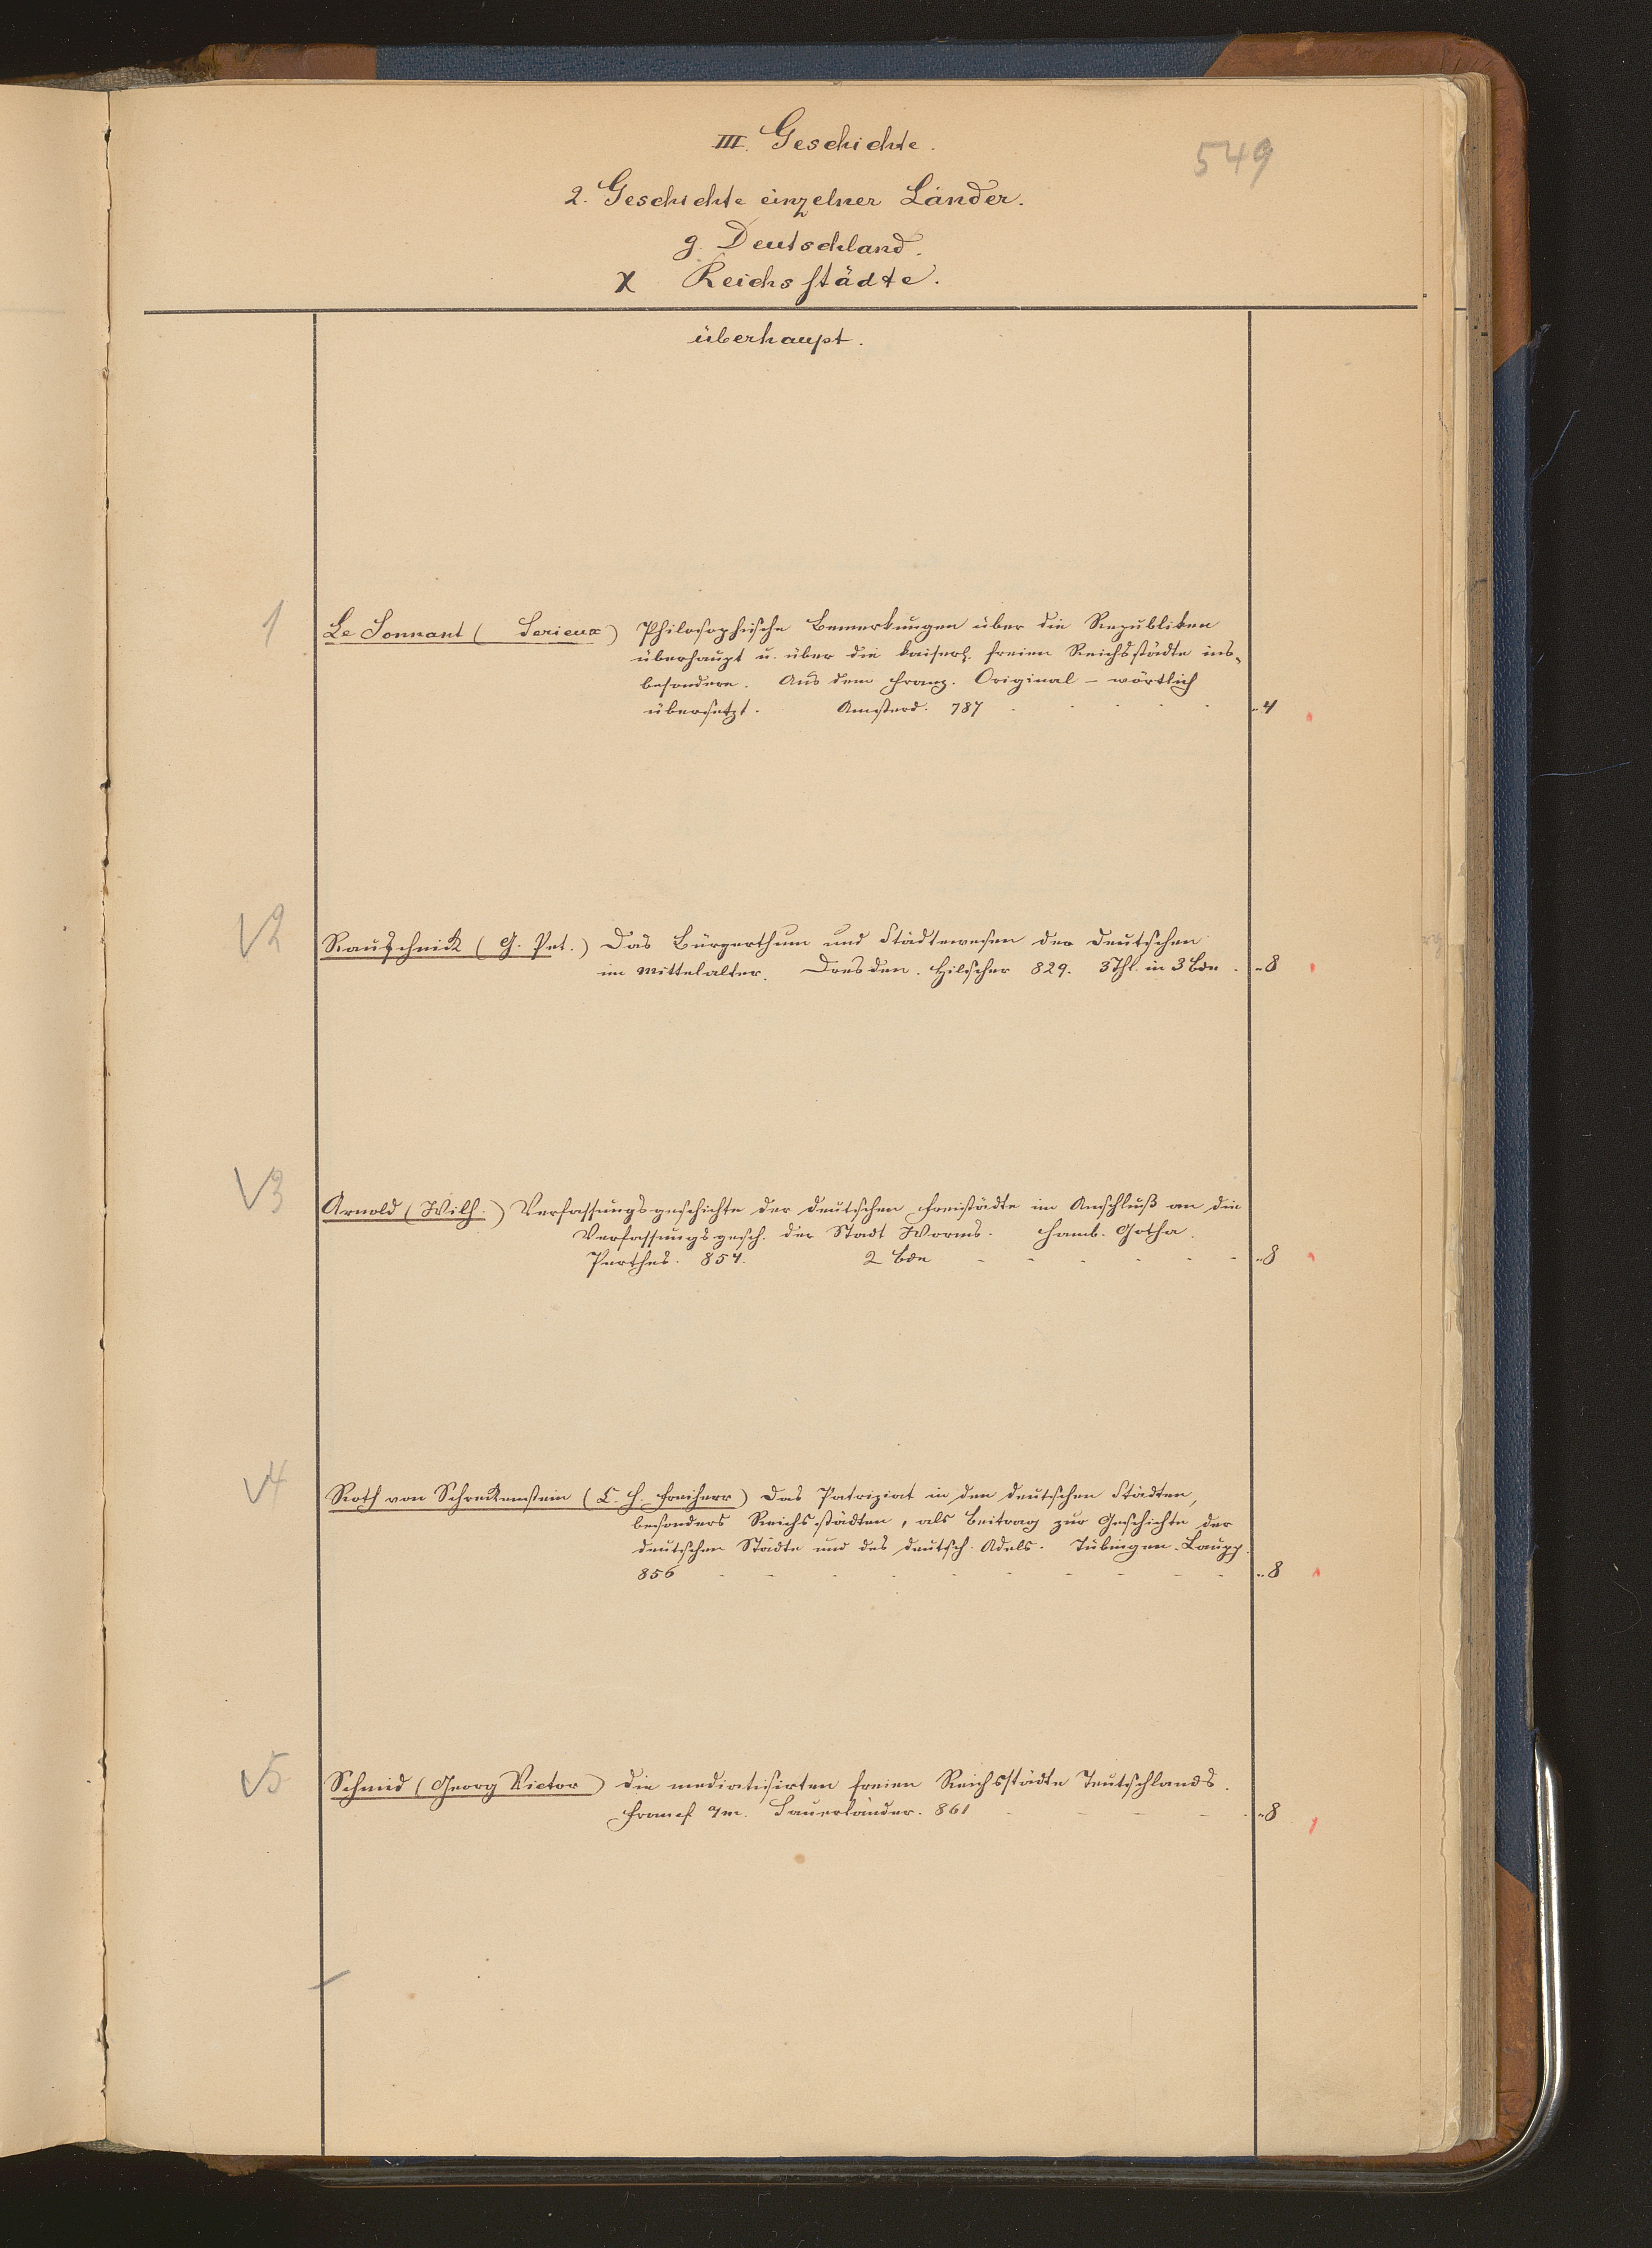 III. Geschichte.
549
2. Geschichte einzelner Länder.
g. Deutschland.
χ Reichsstädte.
überhaupt.
1 Le Sonnant ( Serieux) Philosophische Bemerkungen über die Republiken
überhaupt u. über die kaiserl. freien Reichsstädte ins-
besondere. Aus dem Franz. Original - wörtlich
übersetzt. Amsterd. 787 - - - - - „4
√2 Rauschnick (G. Pet.) Das Bürgerthum und Städtewesen der Deutschen
im Mittelalter. Dresden. Hilscher 829. 3 Thl. in 3 Bde - „8
√3 Arnold (Wilh.) Verfassungsgeschichte der deutschen Freistädte im Anschluß an die
Verfassungsgesch. der Stadt Worms. Hamb. Gotha.
Perthes. 854. 2 Bde - - - - - - „8
√4 Roth von Schreckenstein (C. H. Freiherr) Das Patriziat in den deutschen Städten,
besonders Reichsstädten, als Beitrag zur Geschichte der
deutschen Städte und des deutsch. Adels. Tübingen. Laupp.
856 - - - - - - - - - - „8
√5 Schmid (Georg Victor) die mediatisirten freien Reichsstädte Teutschlands.
Francf a/m. Sauerländer. 861 - - - - - „8